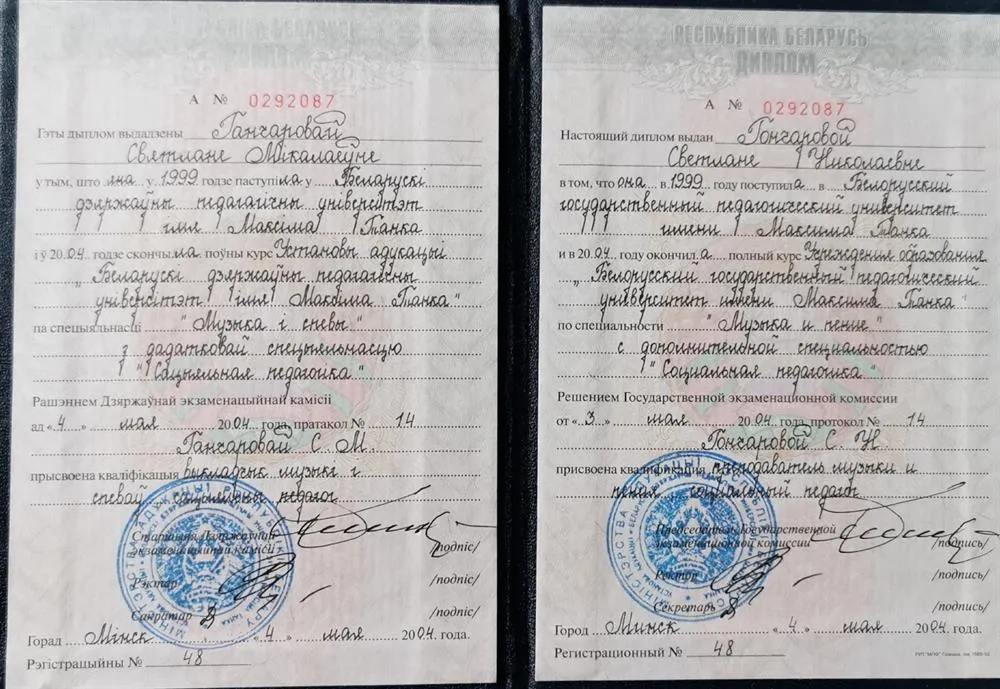 А № 0292087
Гэты дыплом выдадзены Ганчаровай
Святлане Мікалаеўне
у тым, што яна у 1999 годзе паступіла у Беларускі
дзяржаўны педагагічны універсітэт
імя Максіма Танка
і ў 2004 годзе скончыла поўны курс Установы адукацыі
„Беларускі дзяржаўны педагагічны
універсітэт імя Максіма Танка"
па спецыяльнасці "Музыка і спевы"
з дадатковай спецыяльнасцю
"Сацыяльная педагогіка"
Рашэннем Дзяржаўнай экзаменацыйнай камісіі
ад «4» мая 2004 года, пратакол № 14
Ганчаровай С. М.
прысвоена кваліфікацыя выкладчык музыкі і
спеваў сацыяльны педагог
Старшыня Дзяржаўнай
экзаменацыйнай камісіі /подпіс/
Рэктар /подпіс/
Сакратар /подпіс/
Горад Мінск «4» мая 2004 года.
Рэгістрацыйны № 48
РЕСПУБЛИКА БЕЛАРУСЬ
ДИПЛОМ
А № 0292087
Настоящий диплом выдан Гончаровой
Светлане Николаевне
в том, что она в 1999 году поступила в Белорусский
государственный педагогический университет
имени Максима Танка
и в 2004 году окончила полный курс Учреждения образования
„Белорусский государственный педагогический
университет имени Максима Танка"
по специальности "Музыка и пение"
с дополнительной специальностью
"Социальная педагогика"
Решением Государственной экзаменационной комиссии
от «3» мая 2004 года, протокол № 14
Гончаровой С. Н.
присвоена квалификация преподаватель музыки и
пения социальный педагог
Председатель Государственной
экзаменационной комиссии /подпись/
Ректор /подпись/
Секретарь /подпись/
Город Минск «4» мая 2004 года.
Регистрационный № 48